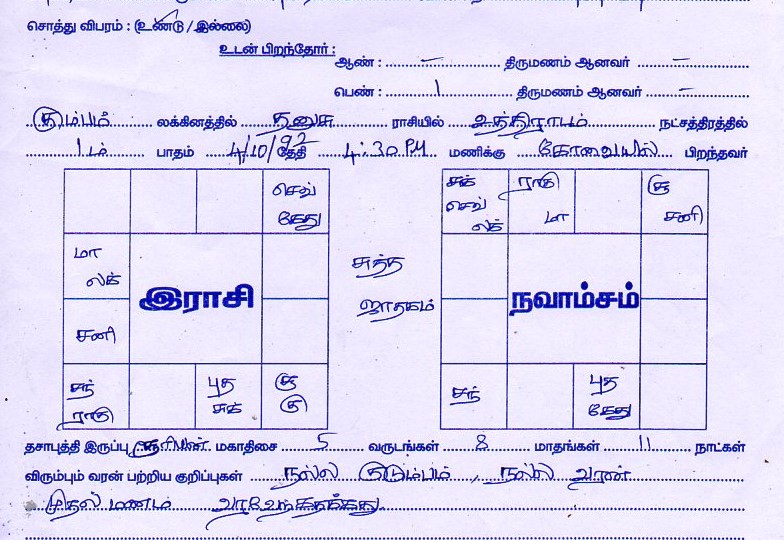 சொத்து விபரம் : (உண்டு / இல்லை)
உடன் பிறந்தோர் :
ஆண் : – திருமணம் ஆனவர் –
பெண் : 1 திருமணம் ஆனவர் –
கும்பம் லக்கினத்தில் தனுசு ராசியில் உத்திராடம் நட்சத்திரத்தில்
1ம் பாதம் 4/10/92 தேதி 4:30 PM மணிக்கு கோவையில் பிறந்தவர்
செவ் கேது
மா லக்
இராசி
சனி
சந் ராகு
புத சுக்
சூ கு
சுத்த ஜாதகம்
சுக் செவ் லக்
ராகு மா
சூ சனி
நவாம்சம்
சந்
புத கேது
தசாபுத்தி இருப்பு சூரியன் மகாதிசை 5 வருடங்கள் 8 மாதங்கள் 11 நாட்கள்
விரும்பும் வரன் பற்றிய குறிப்புகள் நல்ல குடும்பம், நல்ல வரன்
முதல் மணம்